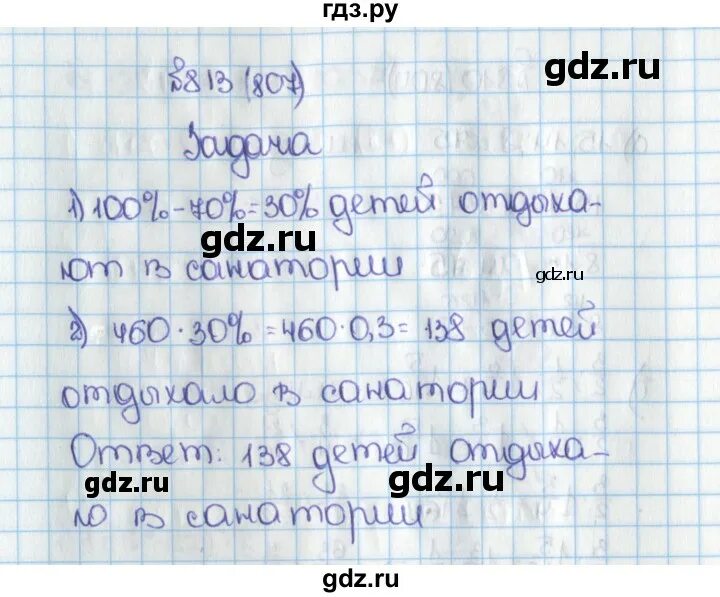 гдз.ру
gdz.ru
№813 (807)
Задача
1) 100% - 70% = 30% детей отдыха-
gdz.ru
ют в санатории
gdz.ru
2) 460 · 30% = 460 · 0,3 = 138 детей
отдыхало в санатории
Ответ: 138 детей отдыха-
gdz.ru
gdz.ru
ло в санатории.
gdz.ru